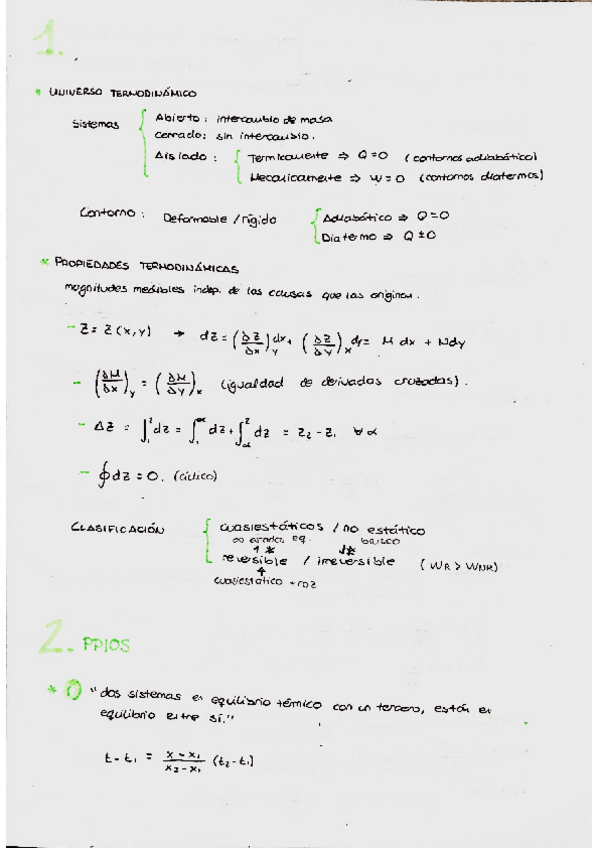 1.
* UNIVERSO TERMODINÁMICO
Sistemas { Abierto : intercambio de masa
cerrado: sin intercambio.
Aislado : { Termicamente ⇒ Q=0 (contornos adiabático)
Mecanicamente ⇒ W=0 (contornos diatermos)
Contorno : Deformable / rígido { Adiabático ⇒ Q=0
Diatermo ⇒ Q ± 0
* PROPIEDADES TERMODINÁMICAS
magnitudes medibles indep. de las causas que las originan.
- Z = Z(x,y) → dZ = (∂Z/∂x)_y dx + (∂Z/∂y)_x dy = M dx + N dy
- (∂M/∂x)_y = (∂M/∂y)_x (igualdad de derivadas cruzadas).
- ΔZ = ∫₁² dz = ∫₁^α dz + ∫_α² dz = Z₂ - Z₁ ∀α
- ∮dz = 0. (cíclico)
CLASIFICACIÓN { cuasiestáticos / no estático
∞ estados eq. brusco
reversible / irreversible (WR > WNR)
cuasiestático - roz
2. PPIOS
* 0 "dos sistemas en equilibrio térmico con un tercero, están en
equilibrio entre sí."
t - t₁ = (x - x₁)/(x₂ - x₁) (t₂ - t₁)